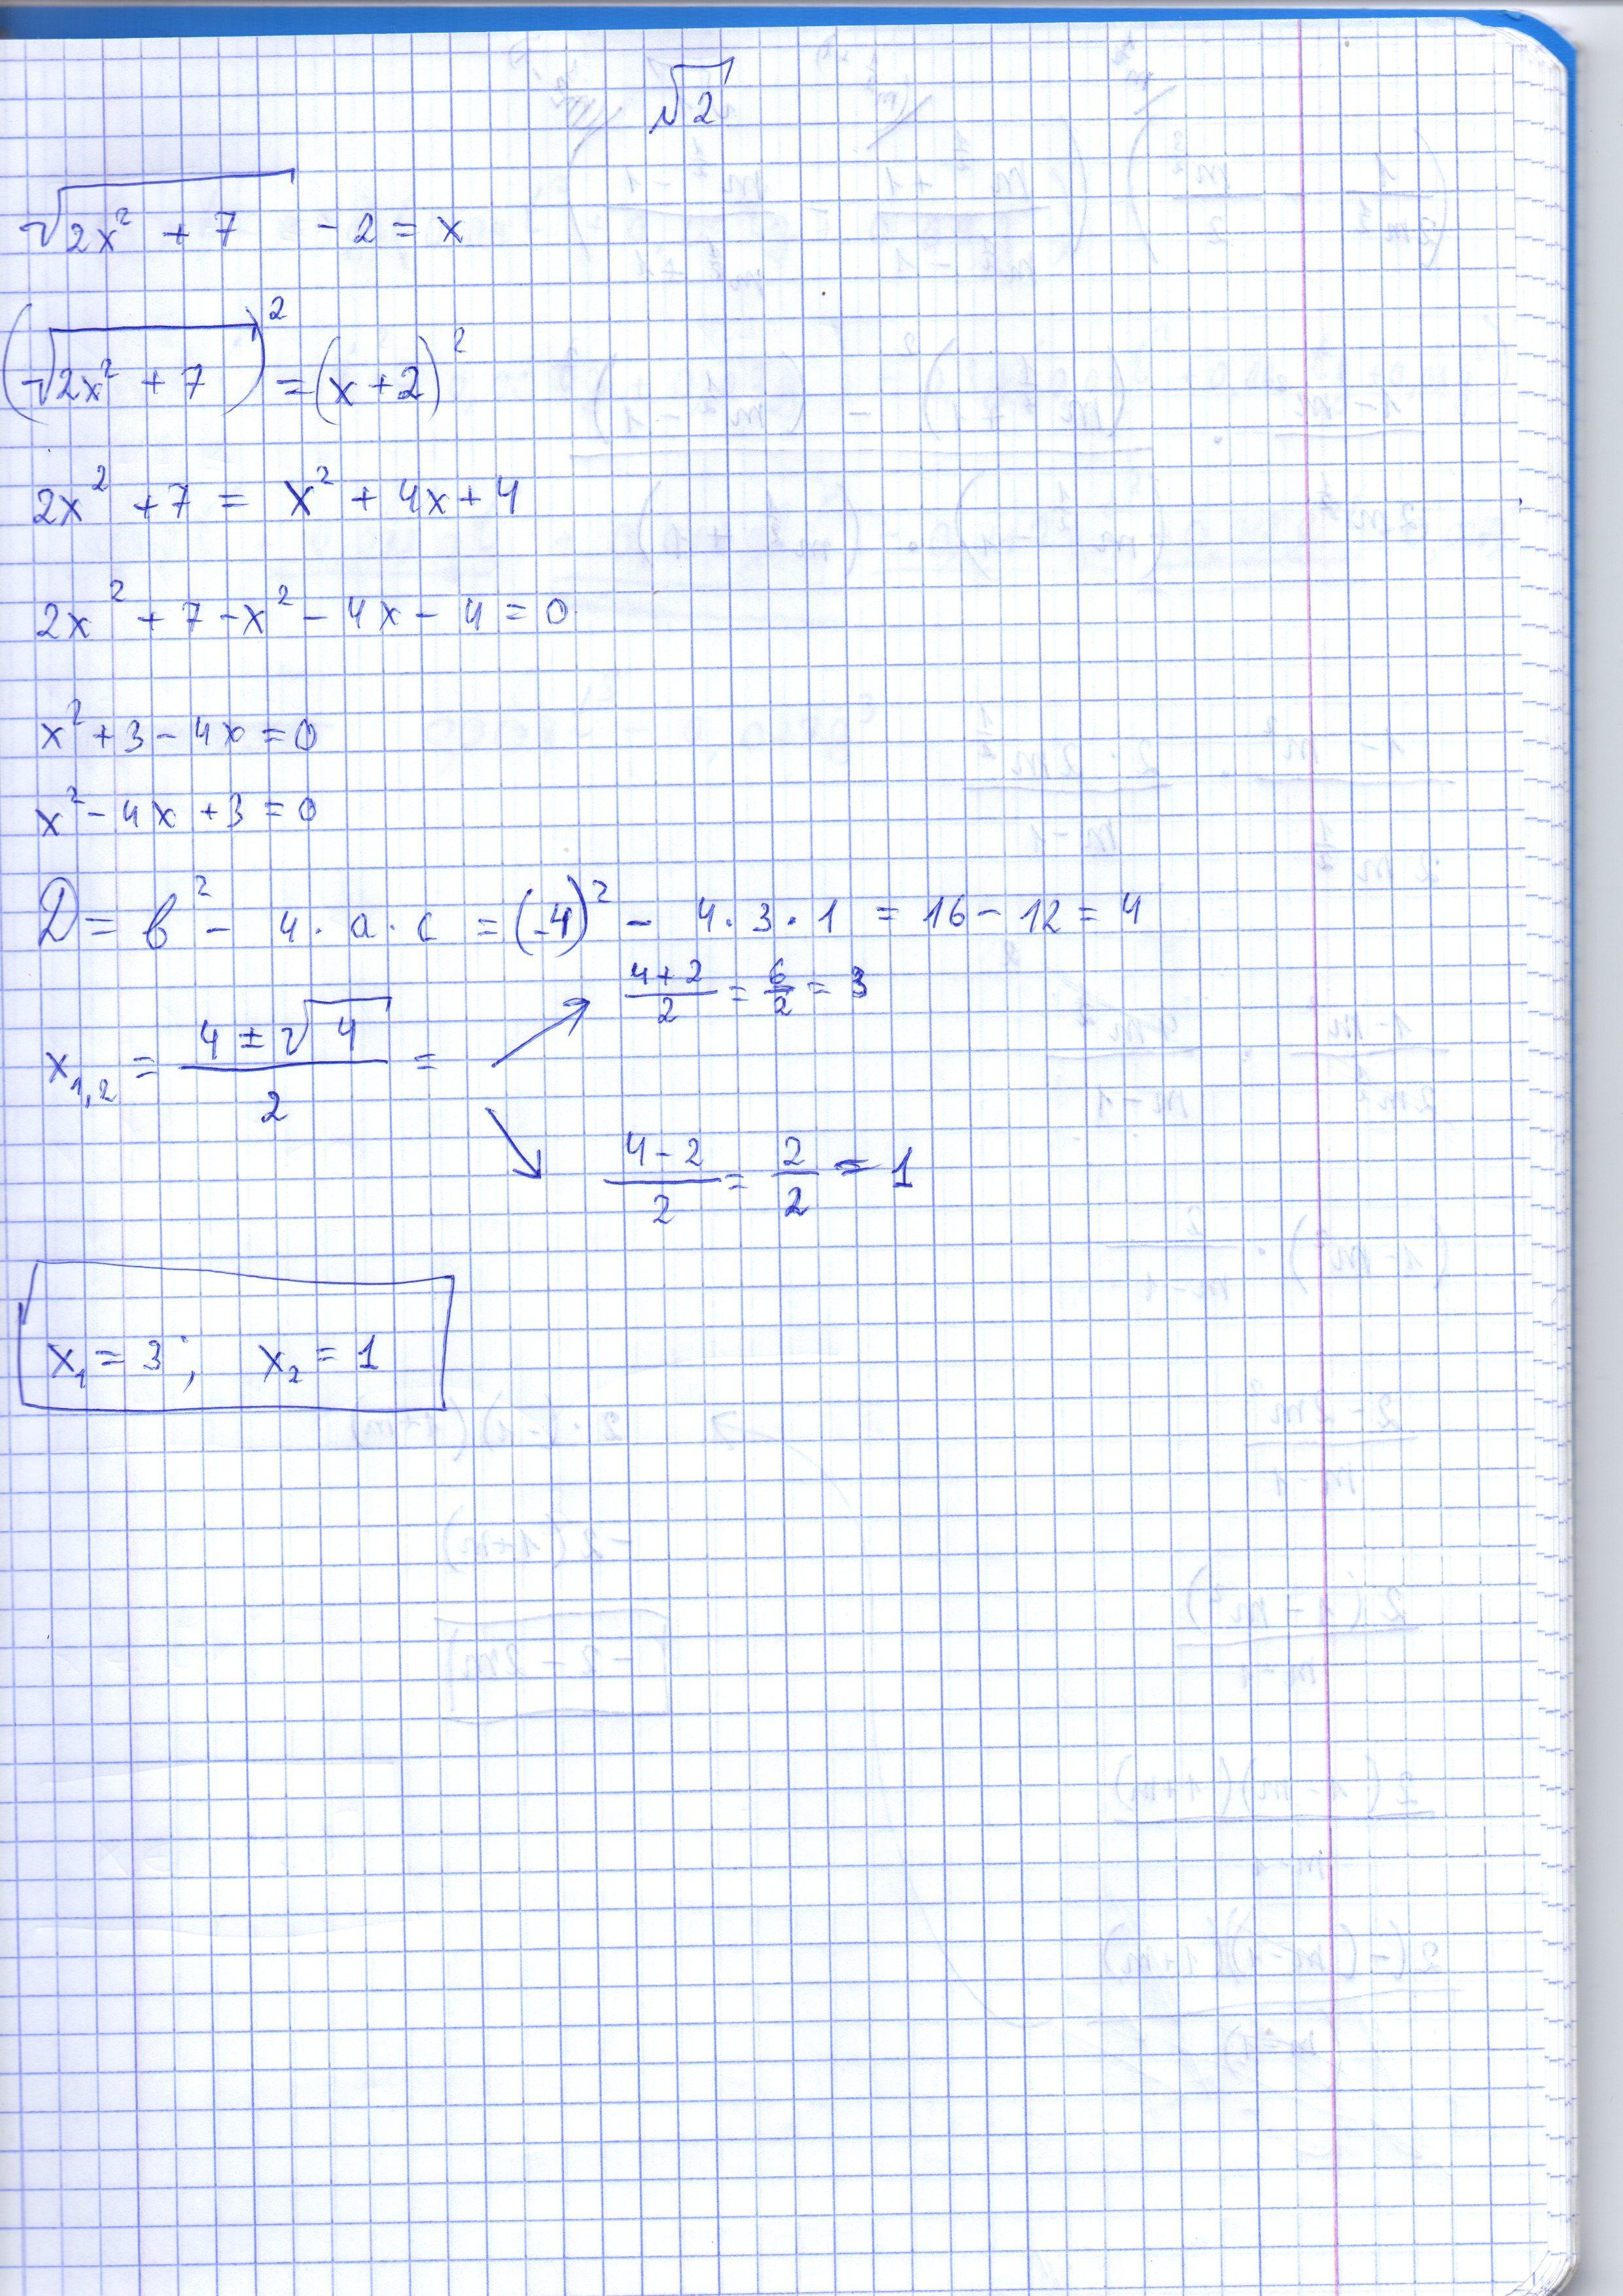 √2
√(2x² + 7) - 2 = x
(√(2x² + 7))² = (x + 2)²
2x² + 7 = x² + 4x + 4
2x² + 7 - x² - 4x - 4 = 0
x² + 3 - 4x = 0
x² - 4x + 3 = 0
D = b² - 4 · a · c = (-4)² - 4 · 3 · 1 = 16 - 12 = 4
x₁,₂ = (4 ± √4)/2 = ↗ (4 + 2)/2 = 6/2 = 3
↘ (4 - 2)/2 = 2/2 = 1
x₁ = 3 ; x₂ = 1